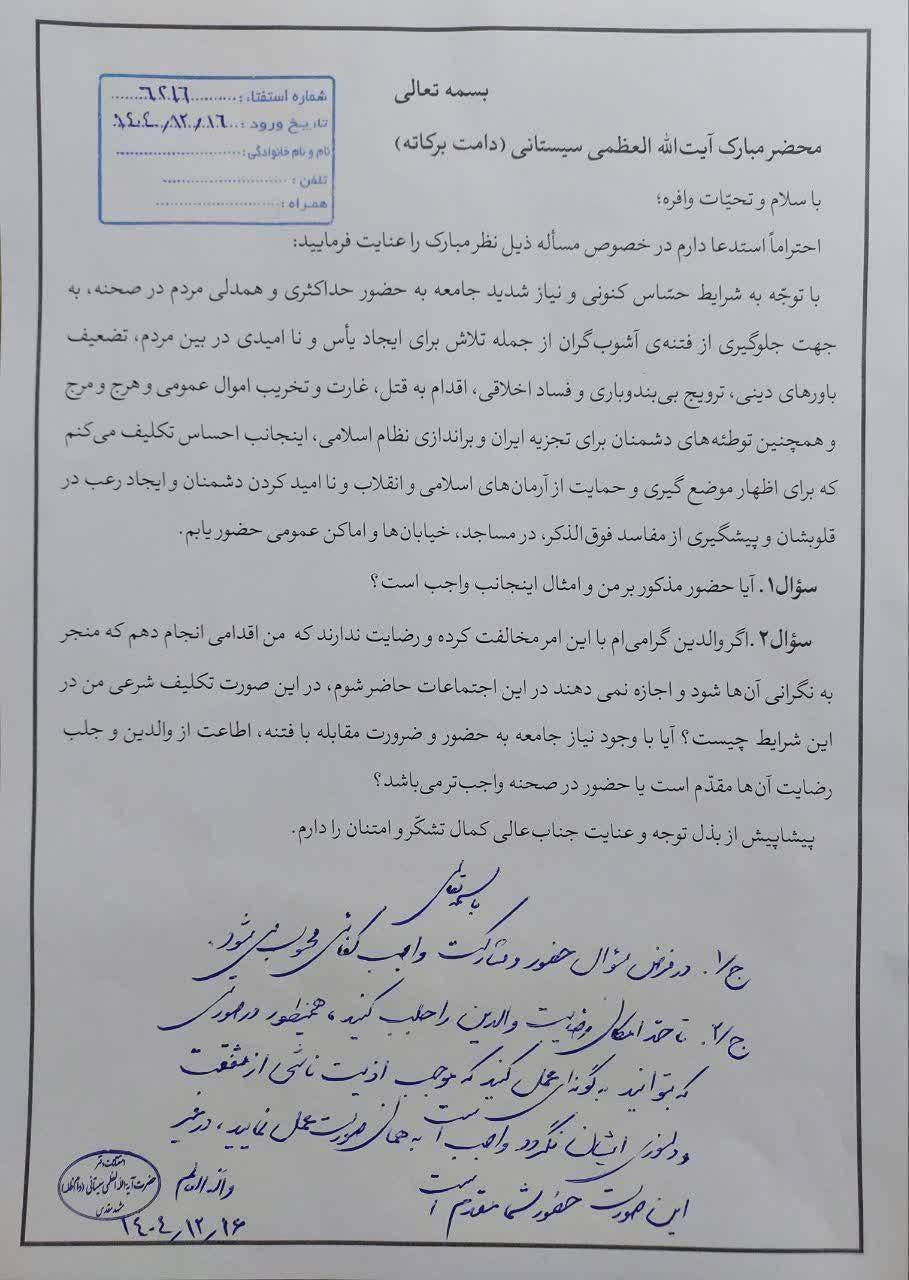 بسمه تعالی
شماره استفتاء: ۶۲۱۶
تاریخ ورود: ۱۴۰۴/۱۲/۱۶
نام و نام خانوادگی:
تلفن:
همراه:
محضر مبارک آیت‌الله العظمی سیستانی (دامت برکاته)
با سلام و تحیّات وافره؛
احتراماً استدعا دارم در خصوص مسأله ذیل نظر مبارک را عنایت فرمایید:
با توجّه به شرایط حسّاس کنونی و نیاز شدید جامعه به حضور حداکثری و همدلی مردم در صحنه، به
جهت جلوگیری از فتنه‌ی آشوب‌گران از جمله تلاش برای ایجاد یأس و نا امیدی در بین مردم، تضعیف
باورهای دینی، ترویج بی‌بندوباری و فساد اخلاقی، اقدام به قتل، غارت و تخریب اموال عمومی و هرج و مرج
و همچنین توطئه‌های دشمنان برای تجزیه ایران و براندازی نظام اسلامی، اینجانب احساس تکلیف می‌کنم
که برای اظهار موضع گیری و حمایت از آرمان‌های اسلامی و انقلاب و نا امید کردن دشمنان و ایجاد رعب در
قلوبشان و پیشگیری از مفاسد فوق‌الذکر، در مساجد، خیابان‌ها و اماکن عمومی حضور یابم.
سؤال۱. آیا حضور مذکور بر من و امثال اینجانب واجب است؟
سؤال۲. اگر والدین گرامی‌ام با این امر مخالفت کرده و رضایت ندارند که من اقدامی انجام دهم که منجر
به نگرانی آن‌ها شود و اجازه نمی دهند در این اجتماعات حاضر شوم، در این صورت تکلیف شرعی من در
این شرایط چیست؟ آیا با وجود نیاز جامعه به حضور و ضرورت مقابله با فتنه، اطاعت از والدین و جلب
رضایت آن‌ها مقدّم است یا حضور در صحنه واجب‌تر می‌باشد؟
پیشاپیش از بذل توجه و عنایت جناب‌عالی کمال تشکّر و امتنان را دارم.
باسمه تعالی
ج/۱. در فرض سؤال حضور و مشارکت واجب کفائی محسوب می شود.
ج/۲. تا حدّ امکان رضایت والدین را جلب کنید، همینطور در صورتی
که بتوانید به گونه‌ای عمل کنید که موجب اذیت ناشی از شفقت
و دلسوزی ایشان نگردد واجب است به همان صورت عمل نمایید، در غیر
این صورت حضور شما مقدم است
والله العالم
حضرت آیة الله العظمی سیستانی (دام ظله)
۱۴۰۴/۱۲/۱۶